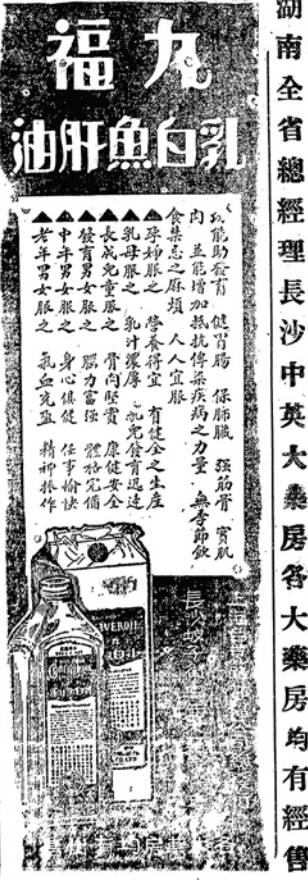 湖南全省總經理長沙中英大藥房各大藥房均有經售
九福
乳白魚肝油
功能助發育 健胃腸 保肺臟 強筋骨 實肌
肉 並能增加抵抗傳染疾病之力量 無季節飲
食禁忌之麻煩 人人宜服
▲孕婦服之 營養得宜 有健全之生產
▲乳母服之 乳汁濃厚 乳兒發育迅速
▲長成兒童服之 骨肉堅實 康健安全
▲發育男女服之 腦力富強 體格完備
▲中年男女服之 身心俱健 任事愉快
▲老年男女服之 氣血充盈 精神振作